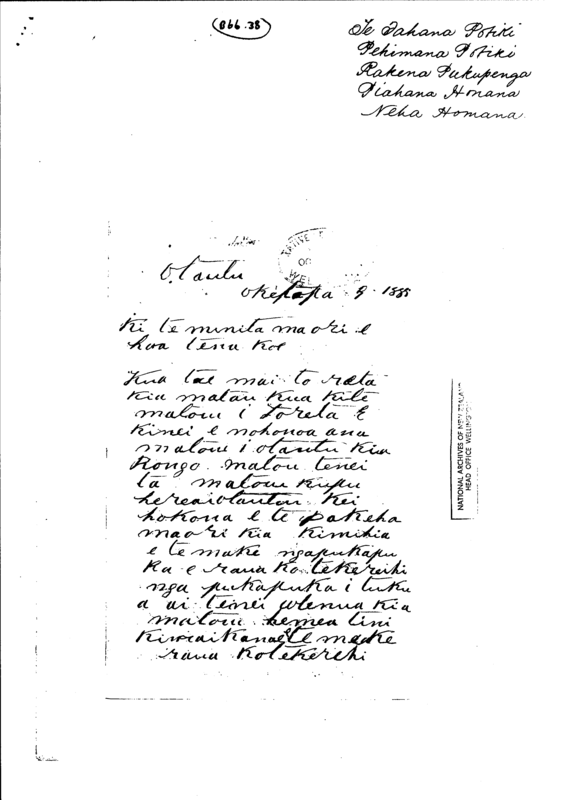 866.38
Te Tahana Potiki
Pehimana Potiki
Rakena Pukupenga
Piahana Honana
Neha Homana
Otautu
Oketopa 9 1888
Ki te minita maori e
hoa tena koe
Kua tae mai to reta
kia matau kua kite
matou i to reta E
kinei e nohonoa ana
matou i otautu kia
Rongo matou tenei
ta matou kupu
kei
hokona e te pakeha
maori kia kimihia
e te make ngapukapu
ka e rana ko tekereihi
nga pukapuka i tuku
a ai tenei whenua kia
matou hemea tini
te meke
rana kotekerehi
NATIONAL ARCHIVES OF NEW ZEALAND
HEAD OFFICE WELLINGTON